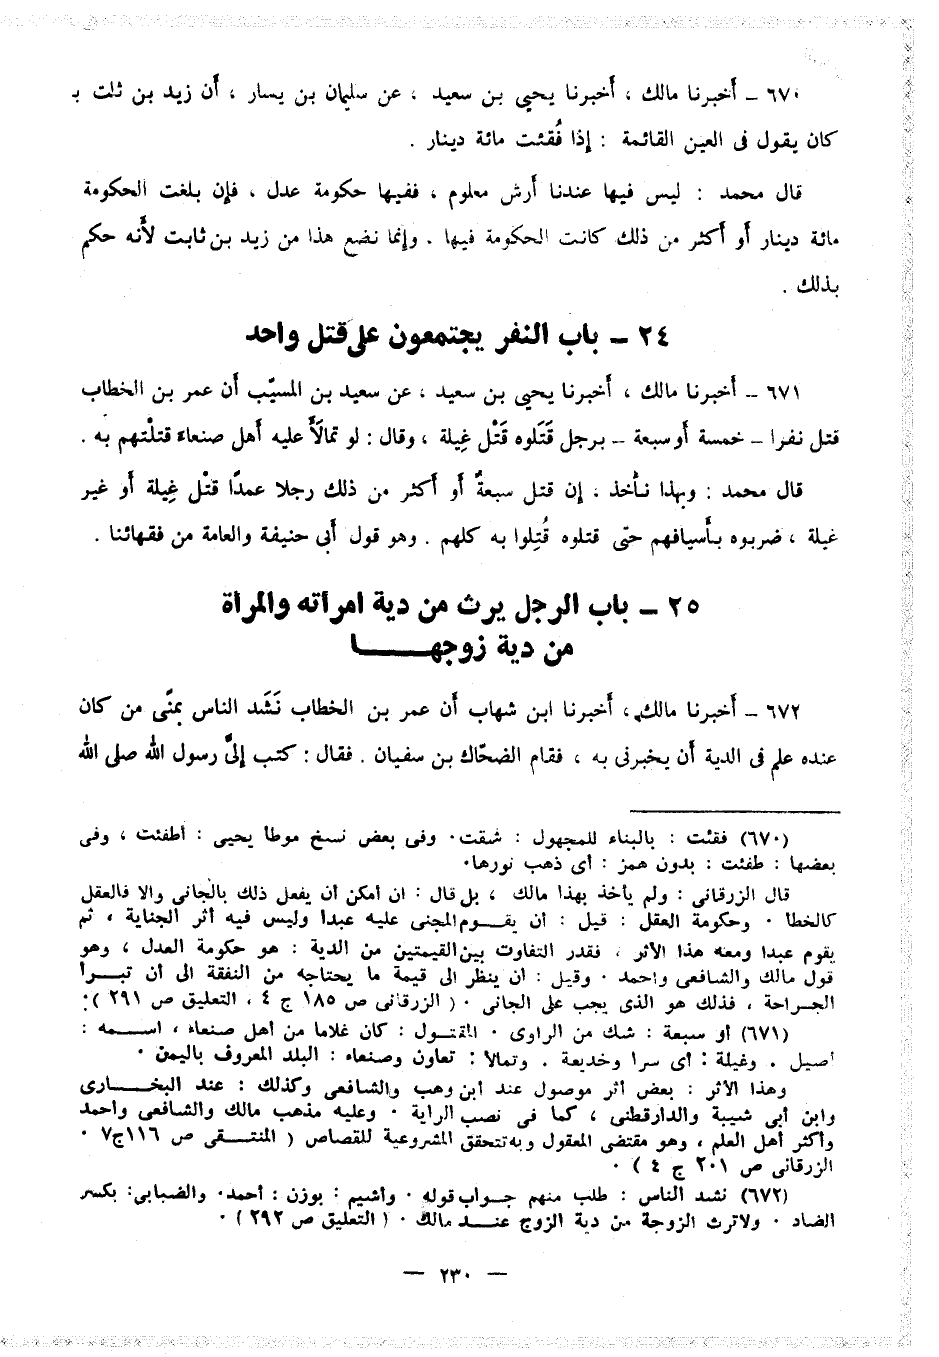 ٦٧٠ – أخبرنا مالك ، أخبرنا يحيى بن سعيد ، عن سليمان بن يسار ، أن زيد بن ثلت بـ
كان يقول فى العين القائمة : إذا فُقئت مائة دينار .
قال محمد : ليس فيها عندنا أرش معلوم ، ففيها حكومة عدل ، فإن بلغت الحكومة
مائة دينار أو أكثر من ذلك كانت الحكومة فيها . وإنما نضع هذا من زيد بن ثابت لأنه حكم
بذلك .
٢٤ – باب النفر يجتمعون على قتل واحد
٦٧١ – أخبرنا مالك ، أخبرنا يحيى بن سعيد ، عن سعيد بن المسيّب أن عمر بن الخطاب
قتل نفرا – خمسة أو سبعة – برجل قَتَلوه قَتْل غِيلة ، وقال : لو تمالَأَ عليه أهل صنعاء قتلْتهم به .
قال محمد : وبهذا نأخذ ، إن قتل سبعةٌ أو أكثر من ذلك رجلا عمدًا قتْل غِيلة أو غير
غيلة ، ضربوه بأسيافهم حتّى قتلوه قُتِلوا به كلهم . وهو قول أبى حنيفة والعامة من فقهائنا .
٢٥ – باب الرجل يرث من دية امرأته والمرأة
من دية زوجهــــــا
٦٧٢ – أخبرنا مالك ، أخبرنا ابن شهاب أن عمر بن الخطاب نَشَد الناس بمنًى من كان
عنده علم فى الدية أن يخبرنى به ، فقام الضحّاك بن سفيان . فقال : كتب إلىَّ رسول الله صلى الله
(٦٧٠) فقئت : بالبناء للمجهول : شقت٠ وفى بعض نسخ موطأ يحيى : أطفئت ، وفى
بعضها : طفئت : بدون همز : أى ذهب نورها٠
قال الزرقانى : ولم يأخذ بهذا مالك ، بل قال : ان أمكن أن يفعل ذلك بالجانى والا فالعقل
كالخطأ ٠ وحكومة العقل : قيل : أن يقـــوم المجنى عليه عبدا وليس فيه أثر الجناية ، ثم
يقوم عبدا ومعه هذا الأثر ، فقدر التفاوت بين القيمتين من الدية : هو حكومة العدل ، وهو
قول مالك والشافعى وأحمد ٠ وقيل : أن ينظر الى قيمة ما يحتاجه من النفقة الى أن تبــرأ
الجـراحة ، فذلك هو الذى يجب على الجانى ٠ ( الزرقانى ص ١٨٥ ج ٤ ، التعليق ص ٢٩١ ):
(٦٧١) أو سبعة : شك من الراوى ٠ المقتــول : كان غلاما من أهل صنعاء ، اســـمه :
أصيل . وغيلة : أى سرا وخديعة . وتمالأ : تعاون وصنعاء : البلد المعروف باليمن ٠
وهذا الأثر : بعض أثر موصول عند ابن وهب والشافعى وكذلك : عند البخـــارى
وابن أبى شيبة والدارقطنى ، كما فى نصب الراية ٠ وعليه مذهب مالك والشافعى وأحمد
وأكثر أهل العلم ، وهو مقتضى المعقول وبه تتحقق المشروعية للقصاص ( المنتــقى ص ١١٦ج٧ ٠
الزرقانى ص ٢٠١ ج ٤ ) ٠
(٦٧٢) نشد الناس : طلب منهم جـواب قوله ٠ وأشيم : بوزن : أحمد٠ والضبابى: بكسر
الضاد ٠ ولا ترث الزوجة من دية الزوج عنـــد مالك ٠ ( التعليق ص ٢٩٢ ) ٠
— ٢٣٠ —